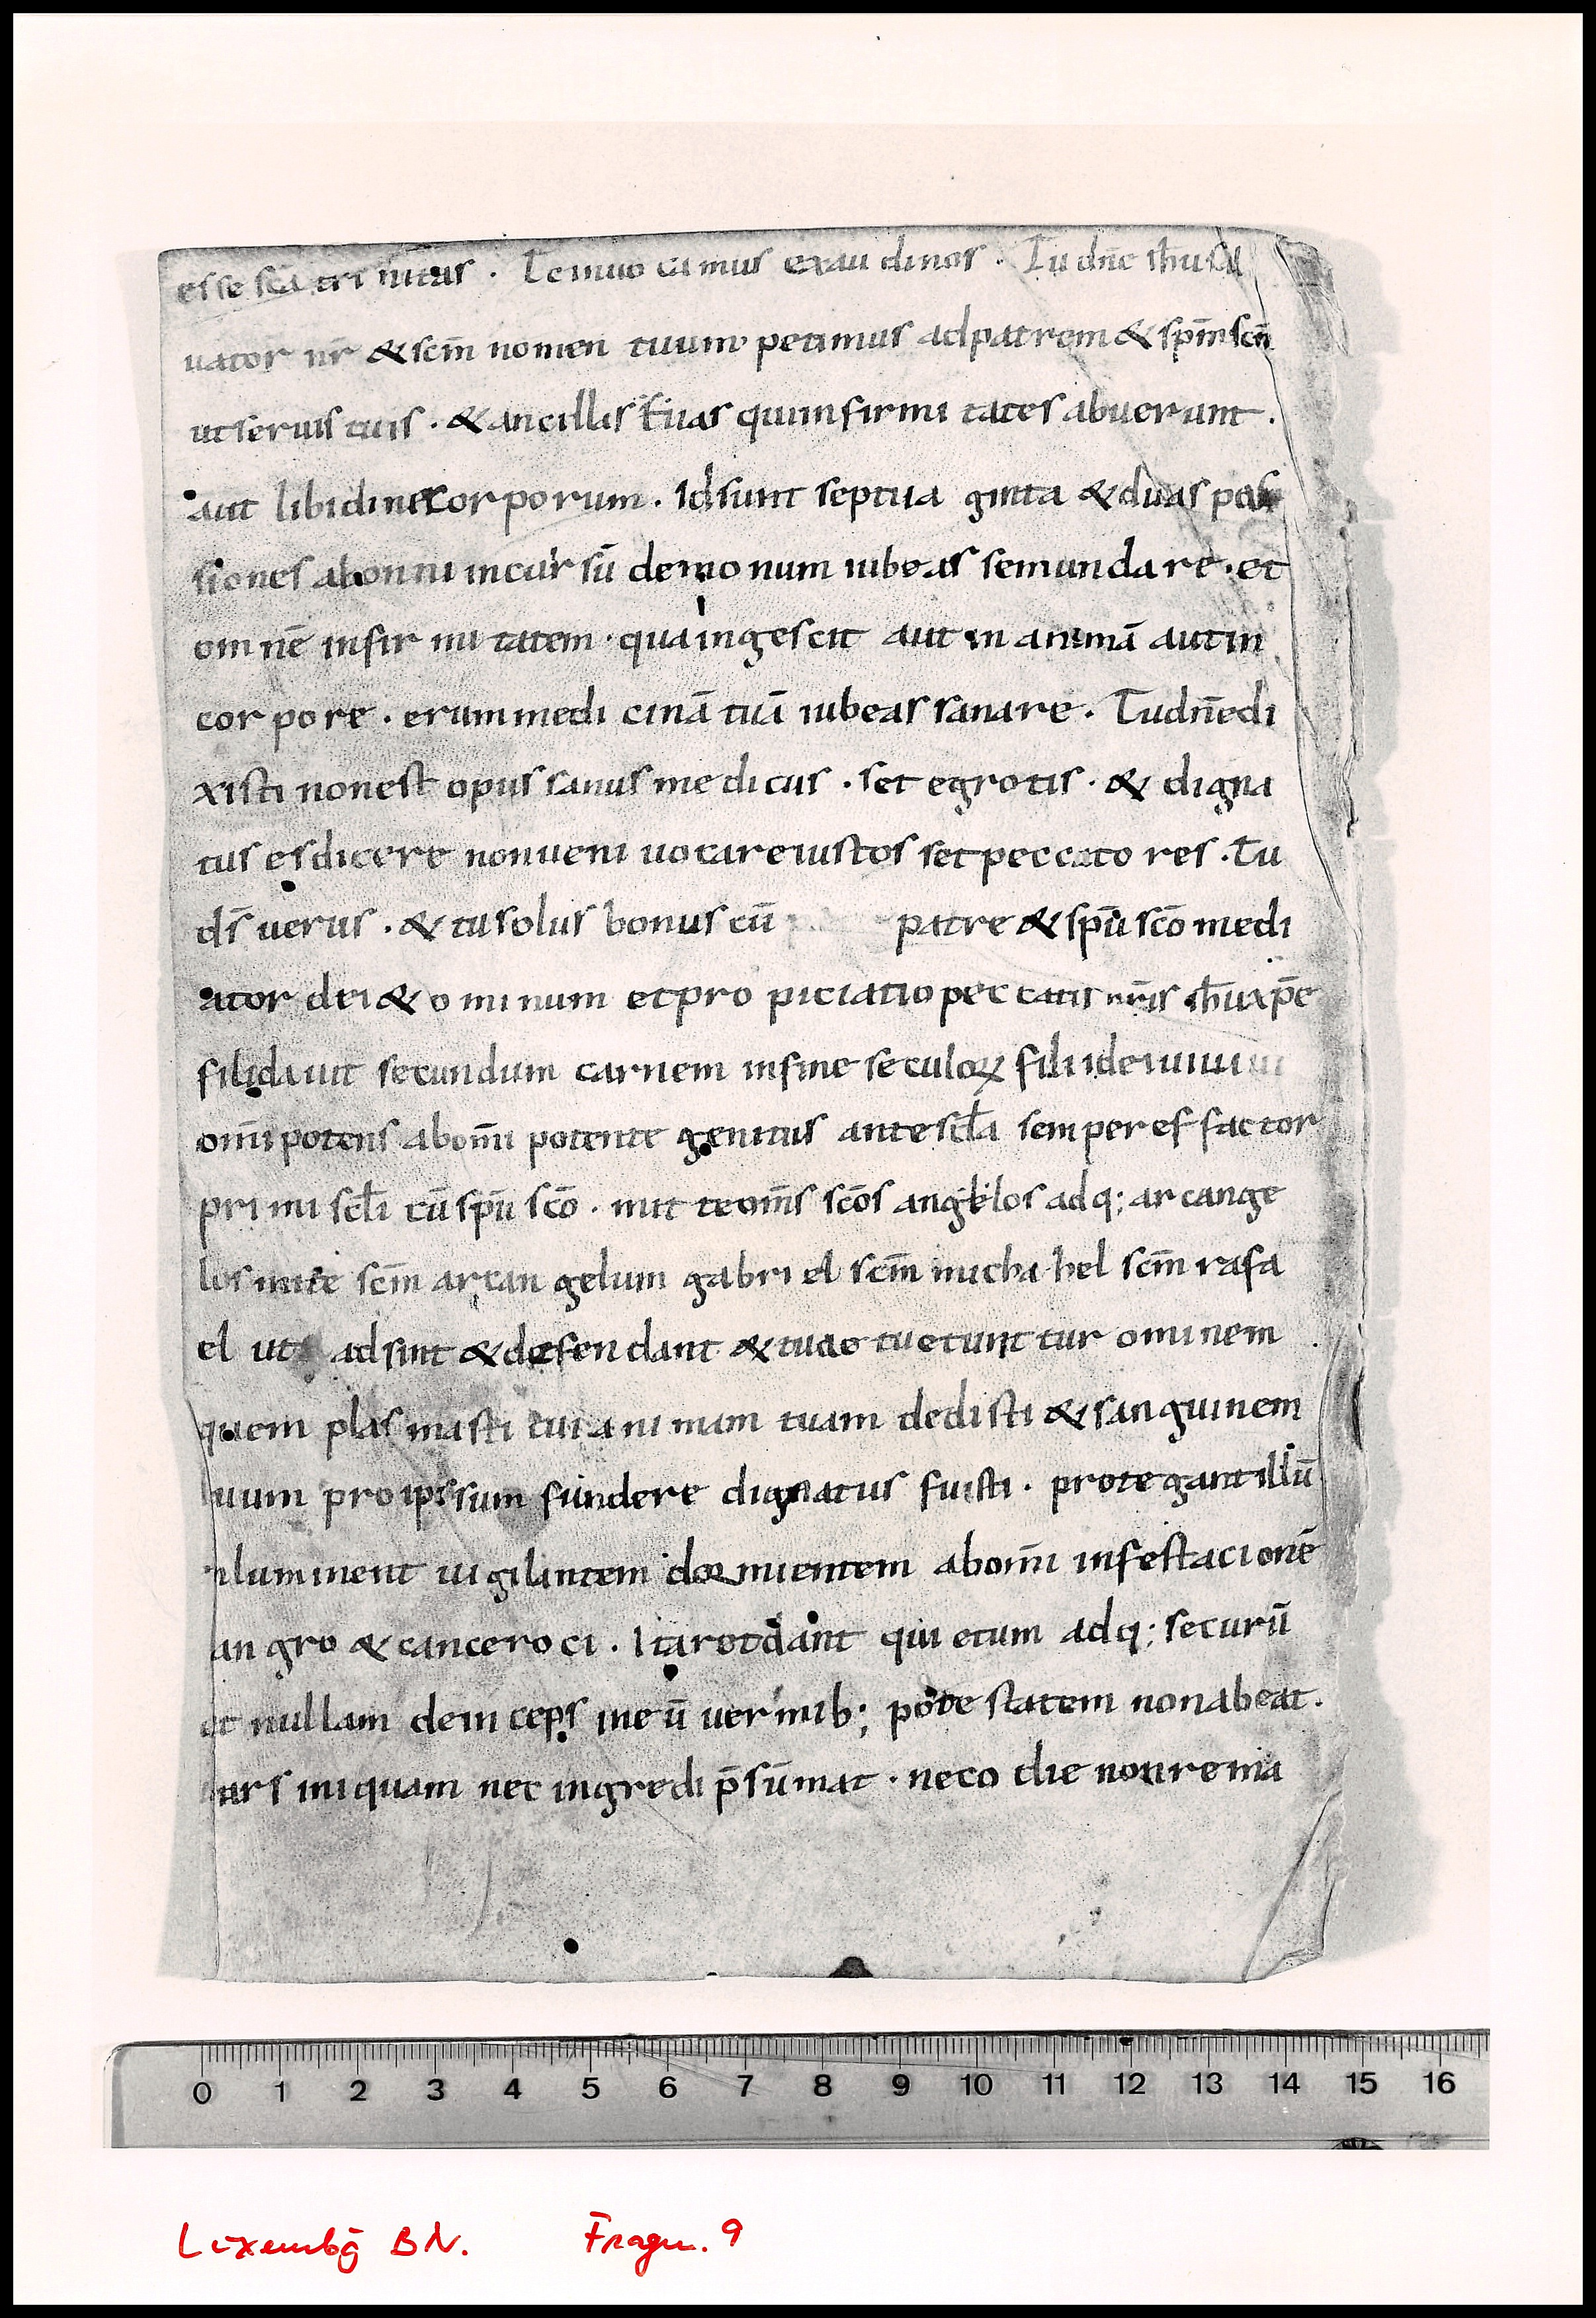 esse sc̄a tri nitas . Te inuo camus exau dinos . Tu dn̄e ih̄u sal
uator nr̄ & scm̄ nomen tuum petimus adpatrem & spm̄ scm̄
ut seruis tuis . & ancillis tuas quiinfirmi tates abuerunt .
aut libidines cor porum . id sunt septua ginta & duas pas
siones abomni incur sū demo num iubeas semundare . et
om nē infir mi tatem . qua ingescit aut in animā aut in
cor pore . erum medi cinā tuā iubeas sanare . Tu dn̄e di
xisti nonest opus sanus me dicus . set egrotis . & digna
tus es dicere non ueni uocare iustos set peccato res . Tu
ds̄ uerus . & tu solus bonus cū patre & spū scō medi
ator dei & o mi num et pro piciatio peccatis nr̄is ih̄u xp̄e
fili dauit secundum carnem infine seculoꝝ fili dei uiui
om̄i potens abom̄i potente genitus ante scl̄a semper es factor
pri mi scl̄i cū spū scō . mit te om̄s scōs angelos adq; ar cange
los mite scm̄ arcan gelum gabri el scm̄ micha hel scm̄ rafa
el ut adsint & defen dant & tuae tuetunt tur ominem
quem plas masti cui ani mam tuam dedisti & san guinem
tuum pro ipssum fundere dignatus fuisti . prote gant illū
iluminent uigilintem dormientem abom̄i infestacionē
an gro & cancero ci . Ita reddant qui etum adq; securū
et nullam dein ceps ine ū uer mib; pote statem non abeat .
ars iniquam nec ingredi p̄sūmat . neco die non rema
0 1 2 3 4 5 6 7 8 9 10 11 12 13 14 15 16
Luxembg̅ BN. Fragm. 9